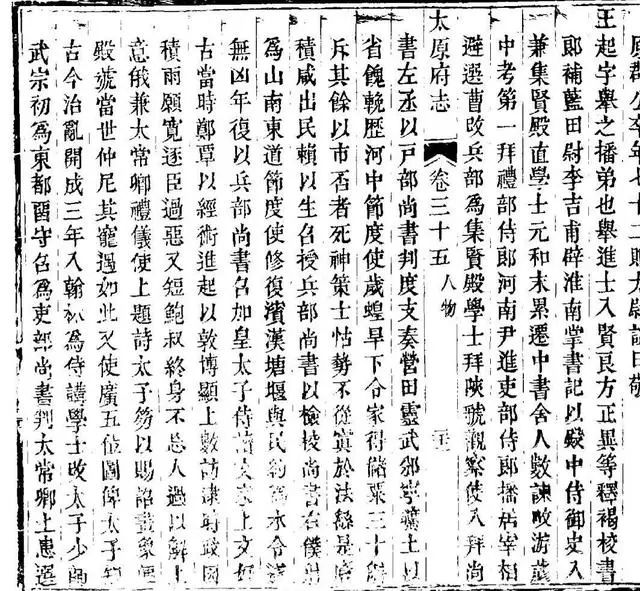 原郡公卒年七十二贈太尉諡曰敬
王起字舉之播弟也舉進士入賢良方正異等釋褐校書
郎補藍田尉李吉甫辟淮南掌書記以殿中侍御史入
兼集賢殿直學士元和末累遷中書舍人數諫畋游
中考第一拜禮部侍郎河南尹進吏部侍郎播居宰相
避選曹改兵部爲集賢殿學士拜陝虢觀察使入拜尚
太原府志 卷三十五 人物
書左丞以戶部尚書判度支奏營田靈武邠寧土以
省餽輓歷河中節度使歲蝗旱下令家得儲粟三十斛
斥其餘以市否者死神策士怙勢不從寘於法繇是
積咸出民賴以生召授兵部尚書以檢校尚書右僕射
爲山南東道節度使修復濱漢塘堰與民約爲水令遂
無凶年復以兵部尚書召加皇太子侍讀上文好
古當時鄭覃以經術進起以敦博顯上數訪逮時政因
積雨願寬逐臣過惡又短鮑叔終身不忘人過以解上
意俄兼太常卿禮儀使上題詩太子笏以賜詔畫象便
殿號當世仲尼其寵遇如此又使廣五位圖俾太子知
古今治亂開成三年入翰林爲侍講學士改太子少師
武宗初爲東都留守召爲吏部尚書判太常卿上患選